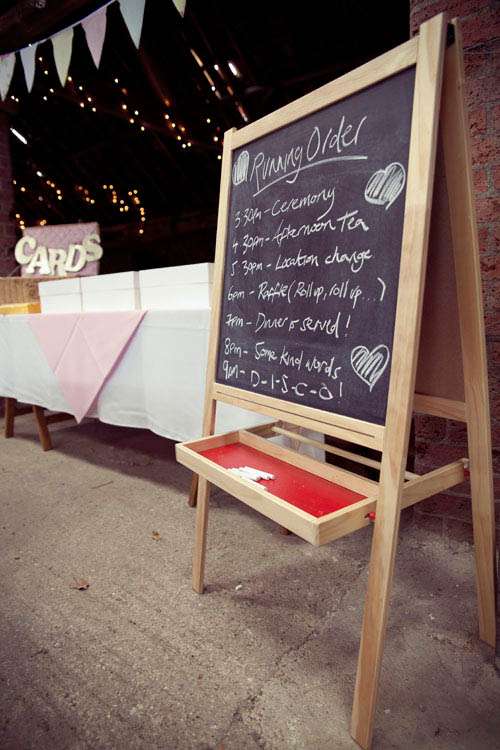 Running Order
3.30pm - Ceremony
4.30pm - Afternoon Tea
5.30pm - Location change
6pm - Raffle (Roll up, roll up...)
7pm - Dinner is served!
8pm - Some kind words
9pm - D-I-S-C-O!
CARDS